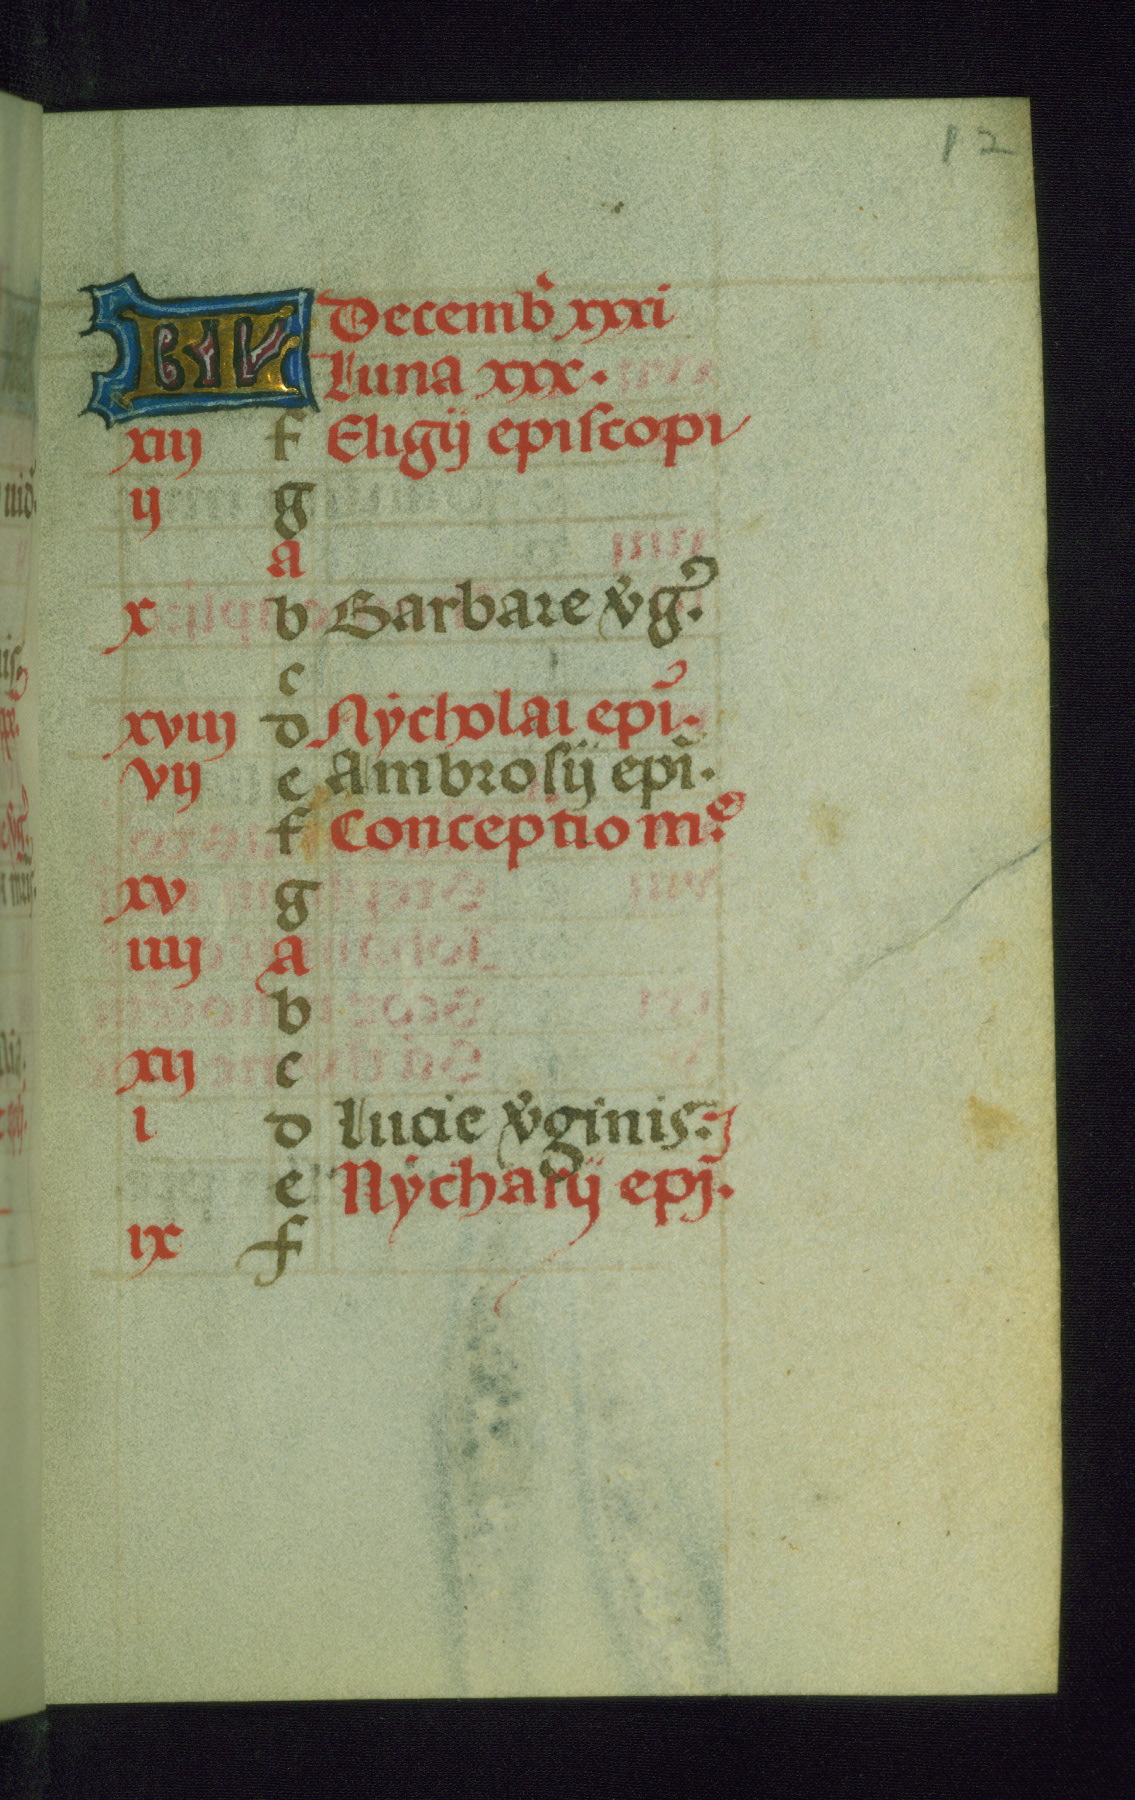 12
KL Decemb' xxxi
Luna xxx.
xiij f Eligij episcopi
ij g
a
x b Barbare v'g'.
c
xviij d Nycholai epi'.
vij e Ambrosij epi.
f Conceptio m'.
xv g
iiij a
b
xij c
i d Lucie v'ginis.
e Nycharij epi.
ix f